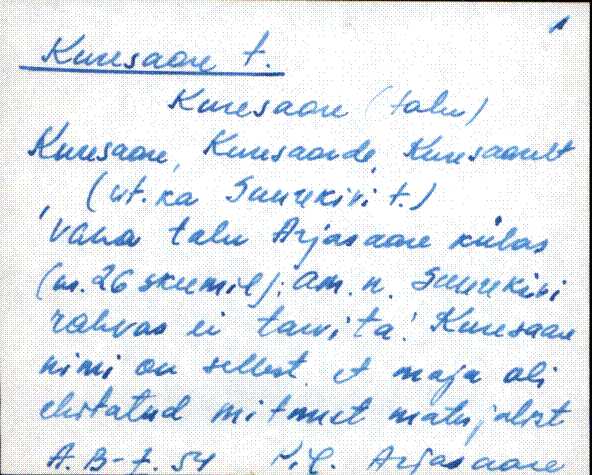 1
Kuresaare t.
Kuresaare (talu)
Kuresaare, Kuresaarde, Kuresaarelt
(vt. ka Suurekivi t.)
'vana talu Arjasaare külas
(nr. 26 skeemil); am. n. Suurekivi
rahvas ei tarvita.' Kuresaare
nimi on sellest, et maja oli
ehitatud mitmest materjalist
A. B-f. 54 Arjasaare